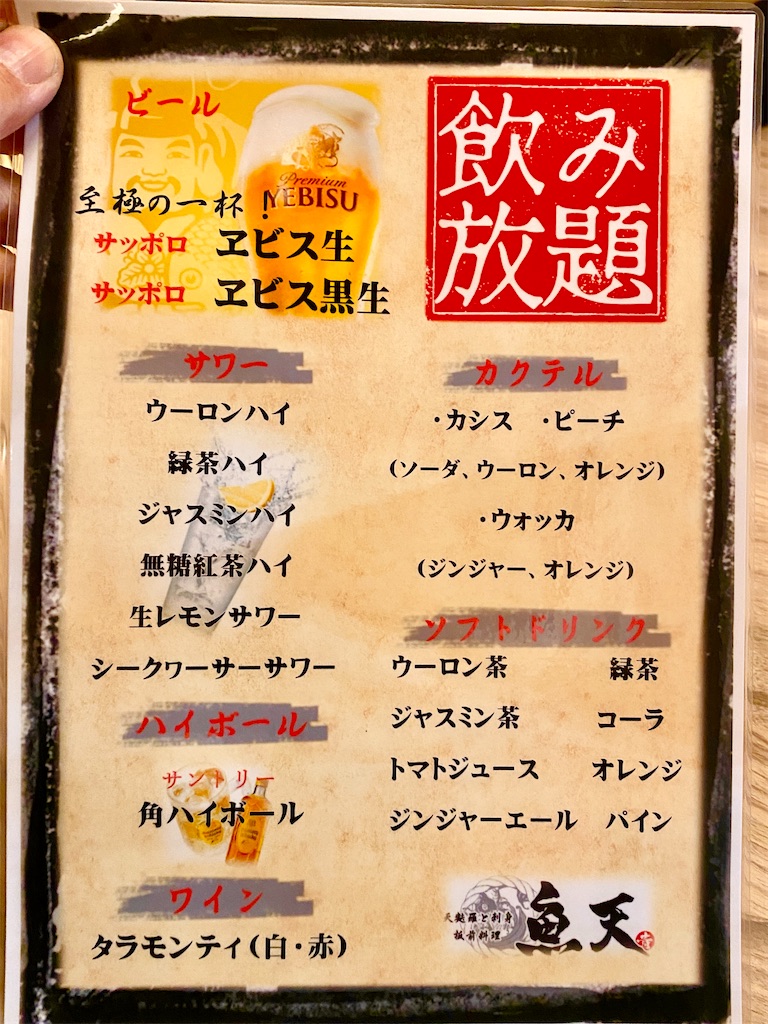 ビール
Premium
YEBISU
至極の一杯！
サッポロ ヱビス生
サッポロ ヱビス黒生
飲み
放題
サワー
ウーロンハイ
緑茶ハイ
ジャスミンハイ
無糖紅茶ハイ
生レモンサワー
シークヮーサーサワー
ハイボール
サントリー
角ハイボール
ワイン
タラモンティ(白・赤)
カクテル
・カシス ・ピーチ
(ソーダ、ウーロン、オレンジ)
・ウォッカ
(ジンジャー、オレンジ)
ソフトドリンク
ウーロン茶 緑茶
ジャスミン茶 コーラ
トマトジュース オレンジ
ジンジャーエール パイン
天麩羅と刺身
板前料理
魚天